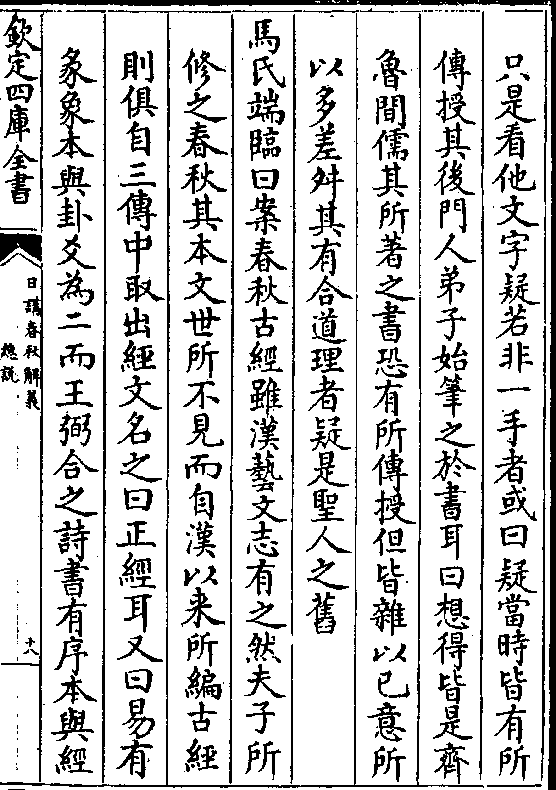 只是看他文字疑若非一手者或曰疑當時皆有所
傳授其後門人弟子始筆之於書耳曰想得皆是齊
魯間儒其所著之書恐有所傳授但皆雜以己意所
以多差舛其有合道理者疑是聖人之舊
馬氏端臨曰案春秋古經雖漢藝文志有之然夫子所
修之春秋其本文世所不見而自漢以来所編古經
則俱自三傳中取出經文名之曰正經耳又曰易有
彖象本與卦爻為二而王弼合之詩書有序本與經
欽定四庫全書
日講春秋解義
總説
十八